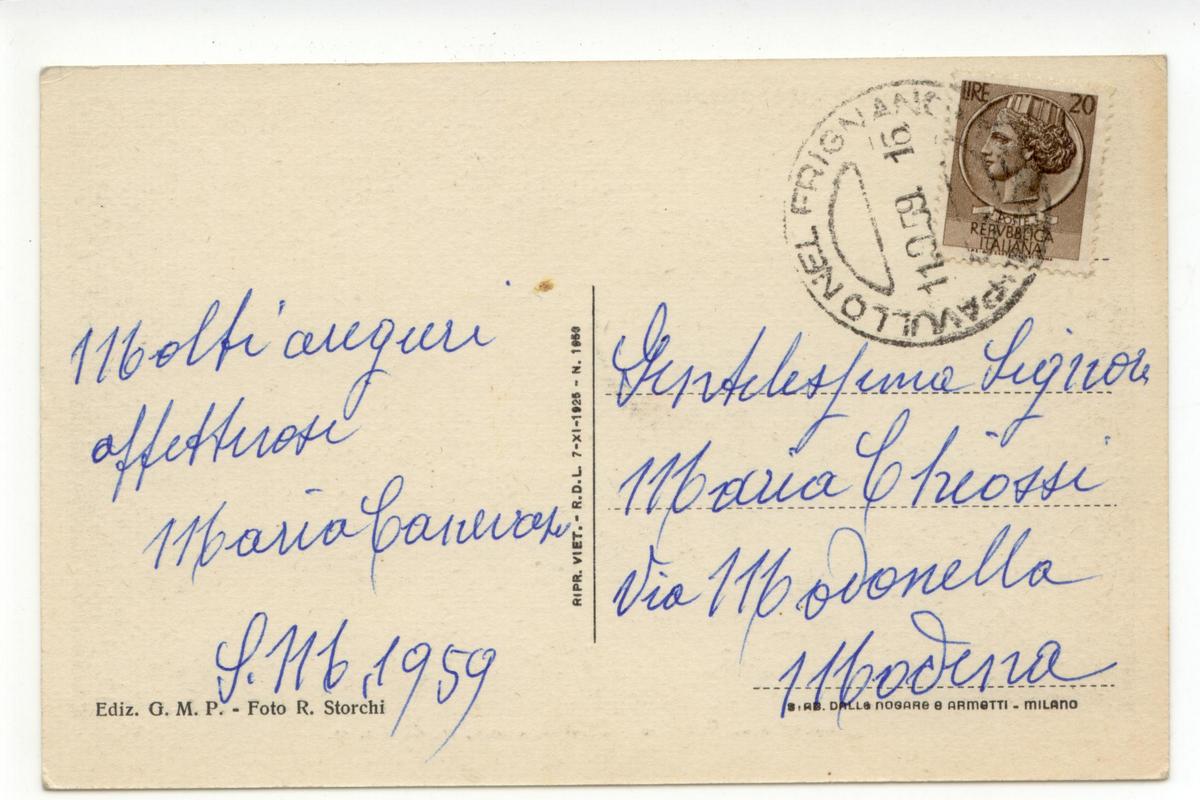 Molti auguri
affettuosi
Maria Canevazzi
S. M. 1959
Ediz. G. M. P. - Foto R. Storchi
RIPR. VIET. - R.D.L. 7-XI-1925 - N. 1950
PAVULLO NEL FRIGNANO
16
59
LIRE 20
POSTE
REPVBBLICA
ITALIANA
Gentilessima Signora
Maria Chiossi
Via Modonella
Modena
DALLE NOGARE e ARMETTI - MILANO